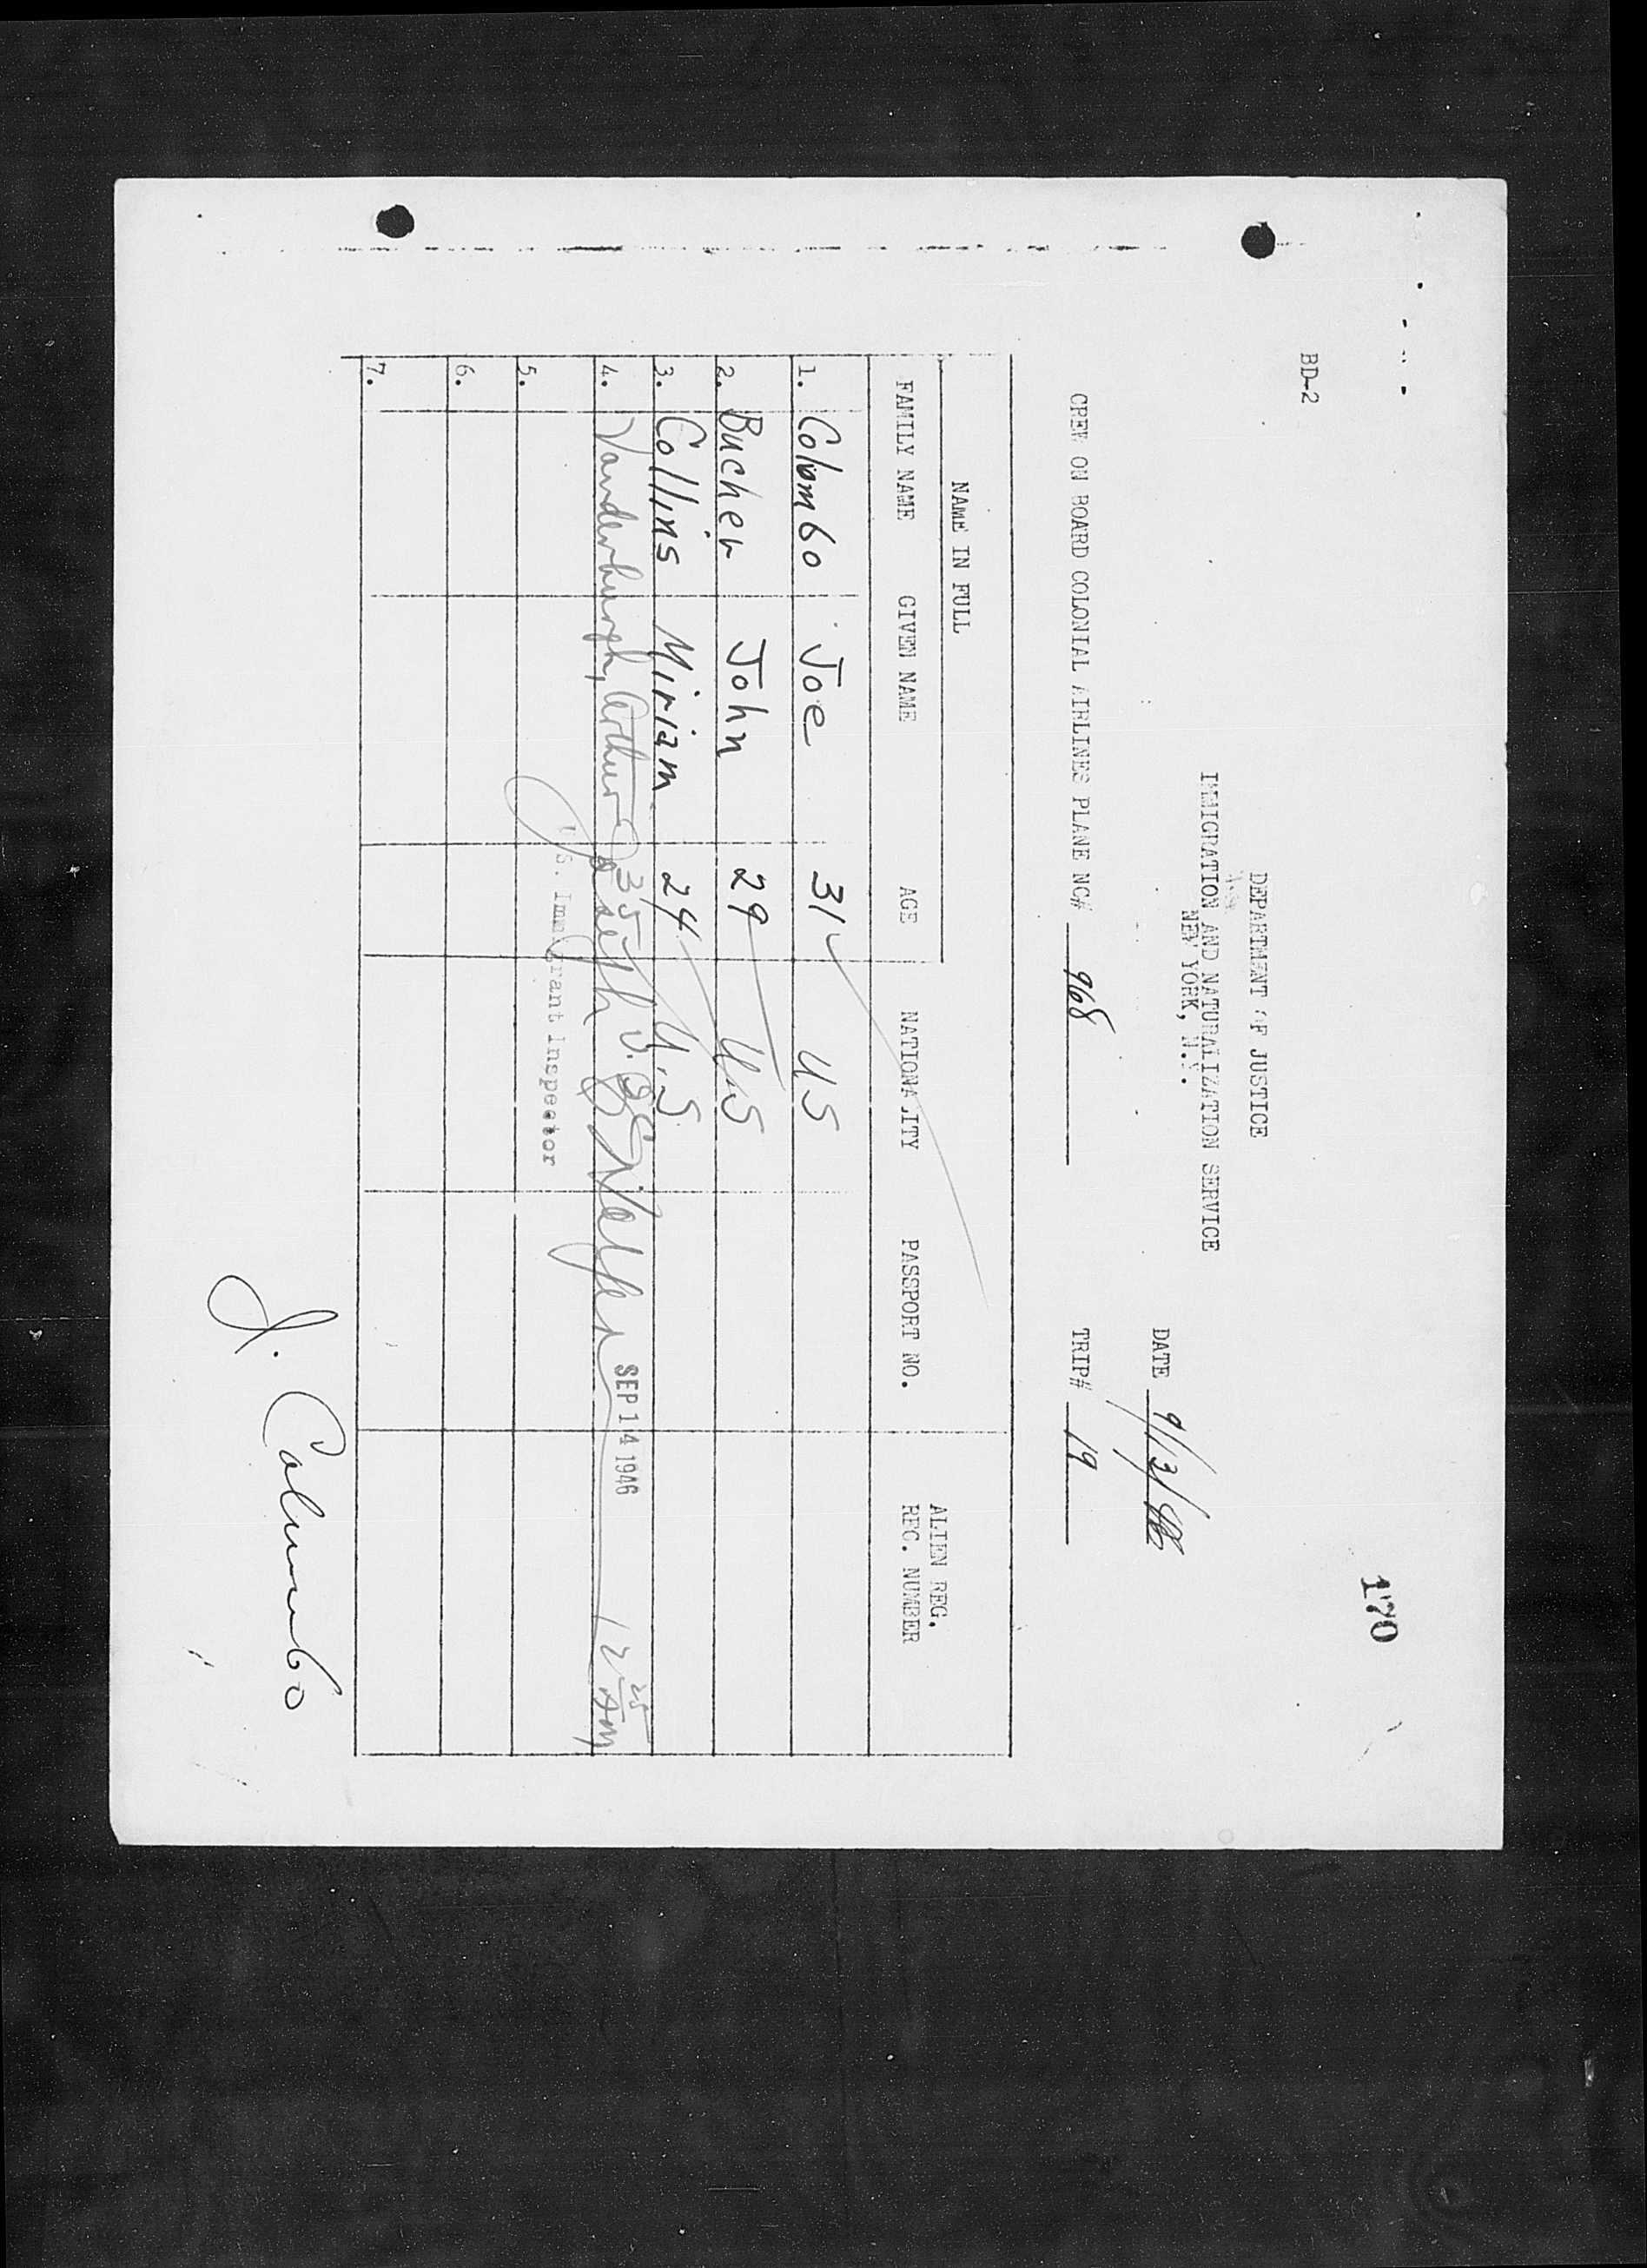 170
BD-2
DEPARTMENT OF JUSTICE
IMMIGRATION AND NATURALIZATION SERVICE
NEW YORK, N.Y.
DATE 9/13/46
CREW ON BOARD COLONIAL AIRLINES PLANE NC# 968 TRIP# 19
NAME IN FULL
FAMILY NAME GIVEN NAME AGE NATIONALITY PASSPORT NO. ALIEN REG. REC. NUMBER
1. Colombo Joe 31 US
2. Bucher John 29 U.S
3. Collins Miriam 24 U.S.
4. Vanderburgh, Arthur 35 Joseph V. SEP 14 1946 12 25 AM
U.S. Immigrant Inspector
5.
6.
7.
J. Colombo